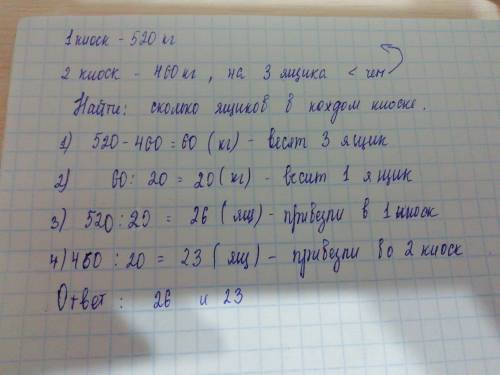 1 киоск - 520 кг
2 киоск - 460 кг, на 3 ящика < чем
Найти: сколко ящиков в кождом киоске.
1) 520 - 460 = 60 (кг) - весят 3 ящик
2) 60 : 20 = 20 (кг) - весит 1 ящик
3) 520 : 20 = 26 (ящ) - привезли в 1 киоск
4) 460 : 20 = 23 (ящ) - привезли во 2 киоск
Ответ: 26 и 23